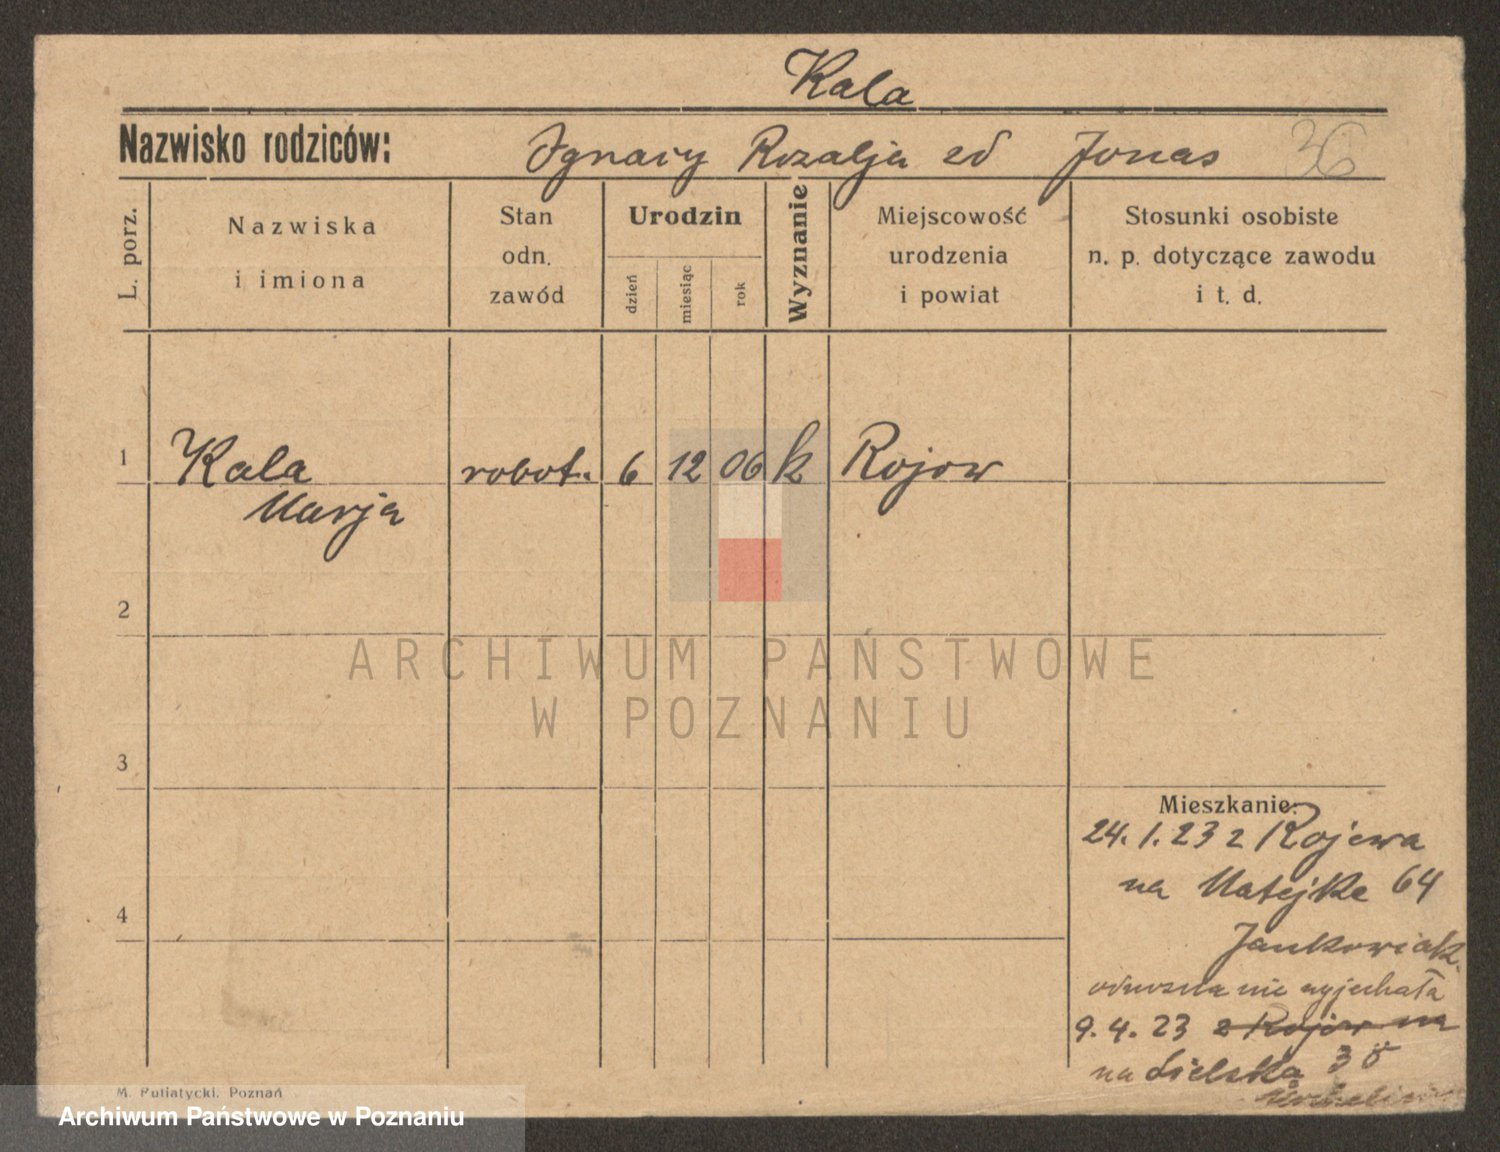 Kala
Nazwisko rodziców: Ignacy Rozalja zd Jonas 36
L. porz.
Nazwiska i imiona
Stan odn. zawód
Urodzin
dzień
miesiąc
rok
Wyznanie
Miejscowość urodzenia i powiat
Stosunki osobiste n. p. dotyczące zawodu i t. d.
1 Kala robot. 6 12 06 k Rojow
Marja
2
3
4
Mieszkanie:
24.1.23 z Rojewa
na Matejke 64
Jankowiak.
nie wyjechała
9.4.23 z Rojow na
na 38
M. Putiatycki, Poznań
ARCHIWUM PAŃSTWOWE
W POZNANIU
Archiwum Państwowe w Poznaniu